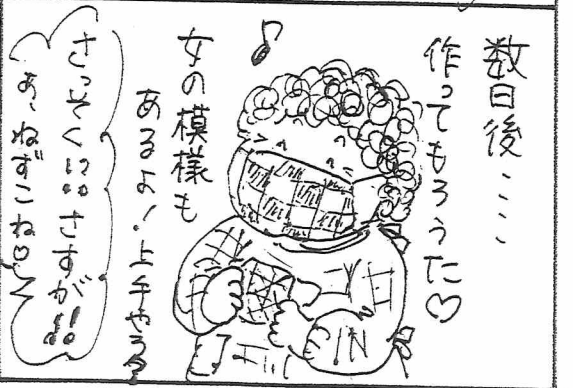 数日後・・・
作ってもろうた♡
♪
女の模様も
あるよ！上手やろ？
さっそく!!さすが!!
あ、ねずこね♡